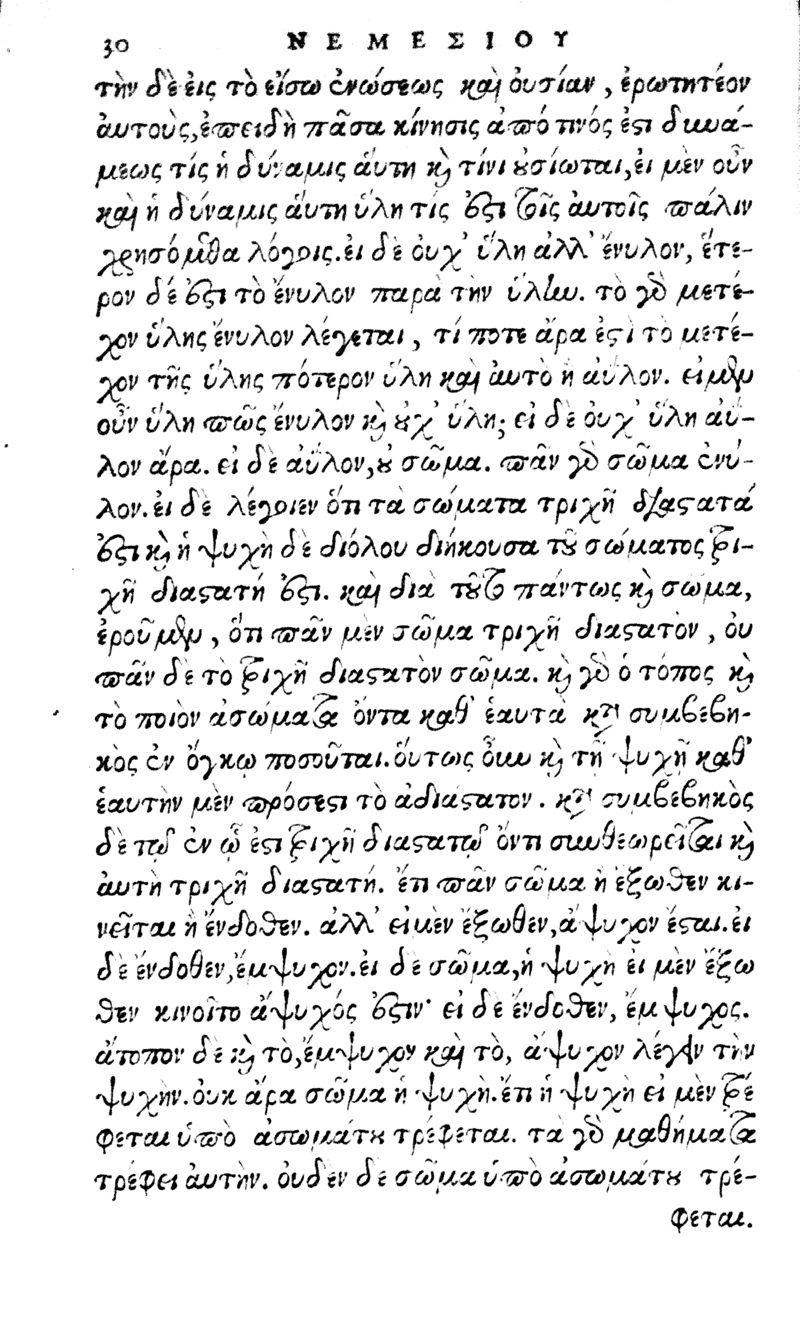 30 ΝΕΜΕΣΙΟΥ
τὴν δὲ εἰς τὸ εἴσω ἑνώσεως καὶ ὀυσίαν, ἐρωτητέον
ἀυτοὺς, ἐπειδὴ πᾶσα κίνησις ἀπό τινός ἐστι δυνά-
μεως τίς ἡ δύναμις ἅυτη καὶ τίνι οὐσίωται, ἐι μὲν οὖν
καὶ ἡ δύναμις ἅυτη ὕλη τίς ἐστι τοῖς ἀυτοῖς πάλιν
χρησόμεθα λόγοις. ἐι δὲ ὀυχ' ὕλη ἀλλ' ἔνυλον, ἕτε-
ρον δέ ἐστι τὸ ἔνυλον παρὰ τὴν ὕλην. τὸ γὰρ μετέ-
χον ὕλης ἔνυλον λέγεται, τί ποτε ἄρα ἐστὶ τὸ μετέ-
χον τῆς ὕλης πότερον ὕλη καὶ ἀυτὸ ἢ ἀύλον. εἰ μὲν
οὖν ὕλη πῶς ἔνυλον καὶ οὐχ' ὕλη; εἰ δὲ ὀυχ' ὕλη ἀύ-
λον ἄρα. εἰ δὲ ἀΰλον, οὐ σῶμα. πᾶν γὰρ σῶμα ἐνύ-
λον. ἐι δὲ λέγοιεν ὅτι τὰ σώματα τριχῆ διαστατά
ἐστι καὶ ἡ ψυχὴ δὲ διόλου διήκουσα τοῦ σώματος τρι-
χῆ διαστατή ἐστι. καὶ διὰ τοῦτο πάντως καὶ σῶμα,
ἐροῦμεν, ὅτι πᾶν μὲν σῶμα τριχῆ διαστατὸν, ὀυ
πᾶν δὲ τὸ τριχῆ διαστατὸν σῶμα. καὶ γὰρ ὁ τόπος καὶ
τὸ ποιὸν ἀσώματα ὄντα καθ' ἑαυτὰ κατὰ συμβεβη-
κὸς ἐν ὄγκῳ ποσοῦται. ὅυτως οὖν καὶ τῇ ψυχῇ καθ'
ἑαυτὴν μὲν πρόσεστι τὸ ἀδιάστατον. κατὰ συμβεβηκὸς
δὲ τῷ ἐν ᾧ ἐστι τριχῆ διαστατῷ ὄντι συνθεωρεῖται καὶ
ἀυτὴ τριχῆ διαστατή. ἔτι πᾶν σῶμα ἢ ἔξωθεν κι-
νεῖται ἢ ἔνδοθεν. ἀλλ' εἰ μὲν ἔξωθεν, ἄψυχον ἔσται. ἐι
δὲ ἔνδοθεν, ἔμψυχον. ἐι δὲ σῶμα, ἡ ψυχὴ ἐι μὲν ἔξω
θεν κινοῖτο ἄψυχός ἐστιν· εἰ δὲ ἔνδοθεν, ἔμψυχος.
ἄτοπον δὲ καὶ τὸ, ἔμψυχον καὶ τὸ, ἄψυχον λέγειν τὴν
ψυχὴν. ὀυκ ἄρα σῶμα ἡ ψυχὴ. ἔτι ἡ ψυχὴ εἰ μὲν τρέ
φεται ὑπὸ ἀσωμάτου τρέφεται. τὰ γὰρ μαθήματα
τρέφει ἀυτὴν. ὀυδὲν δὲ σῶμα ὑπὸ ἀσωμάτου τρέ-
φεται.